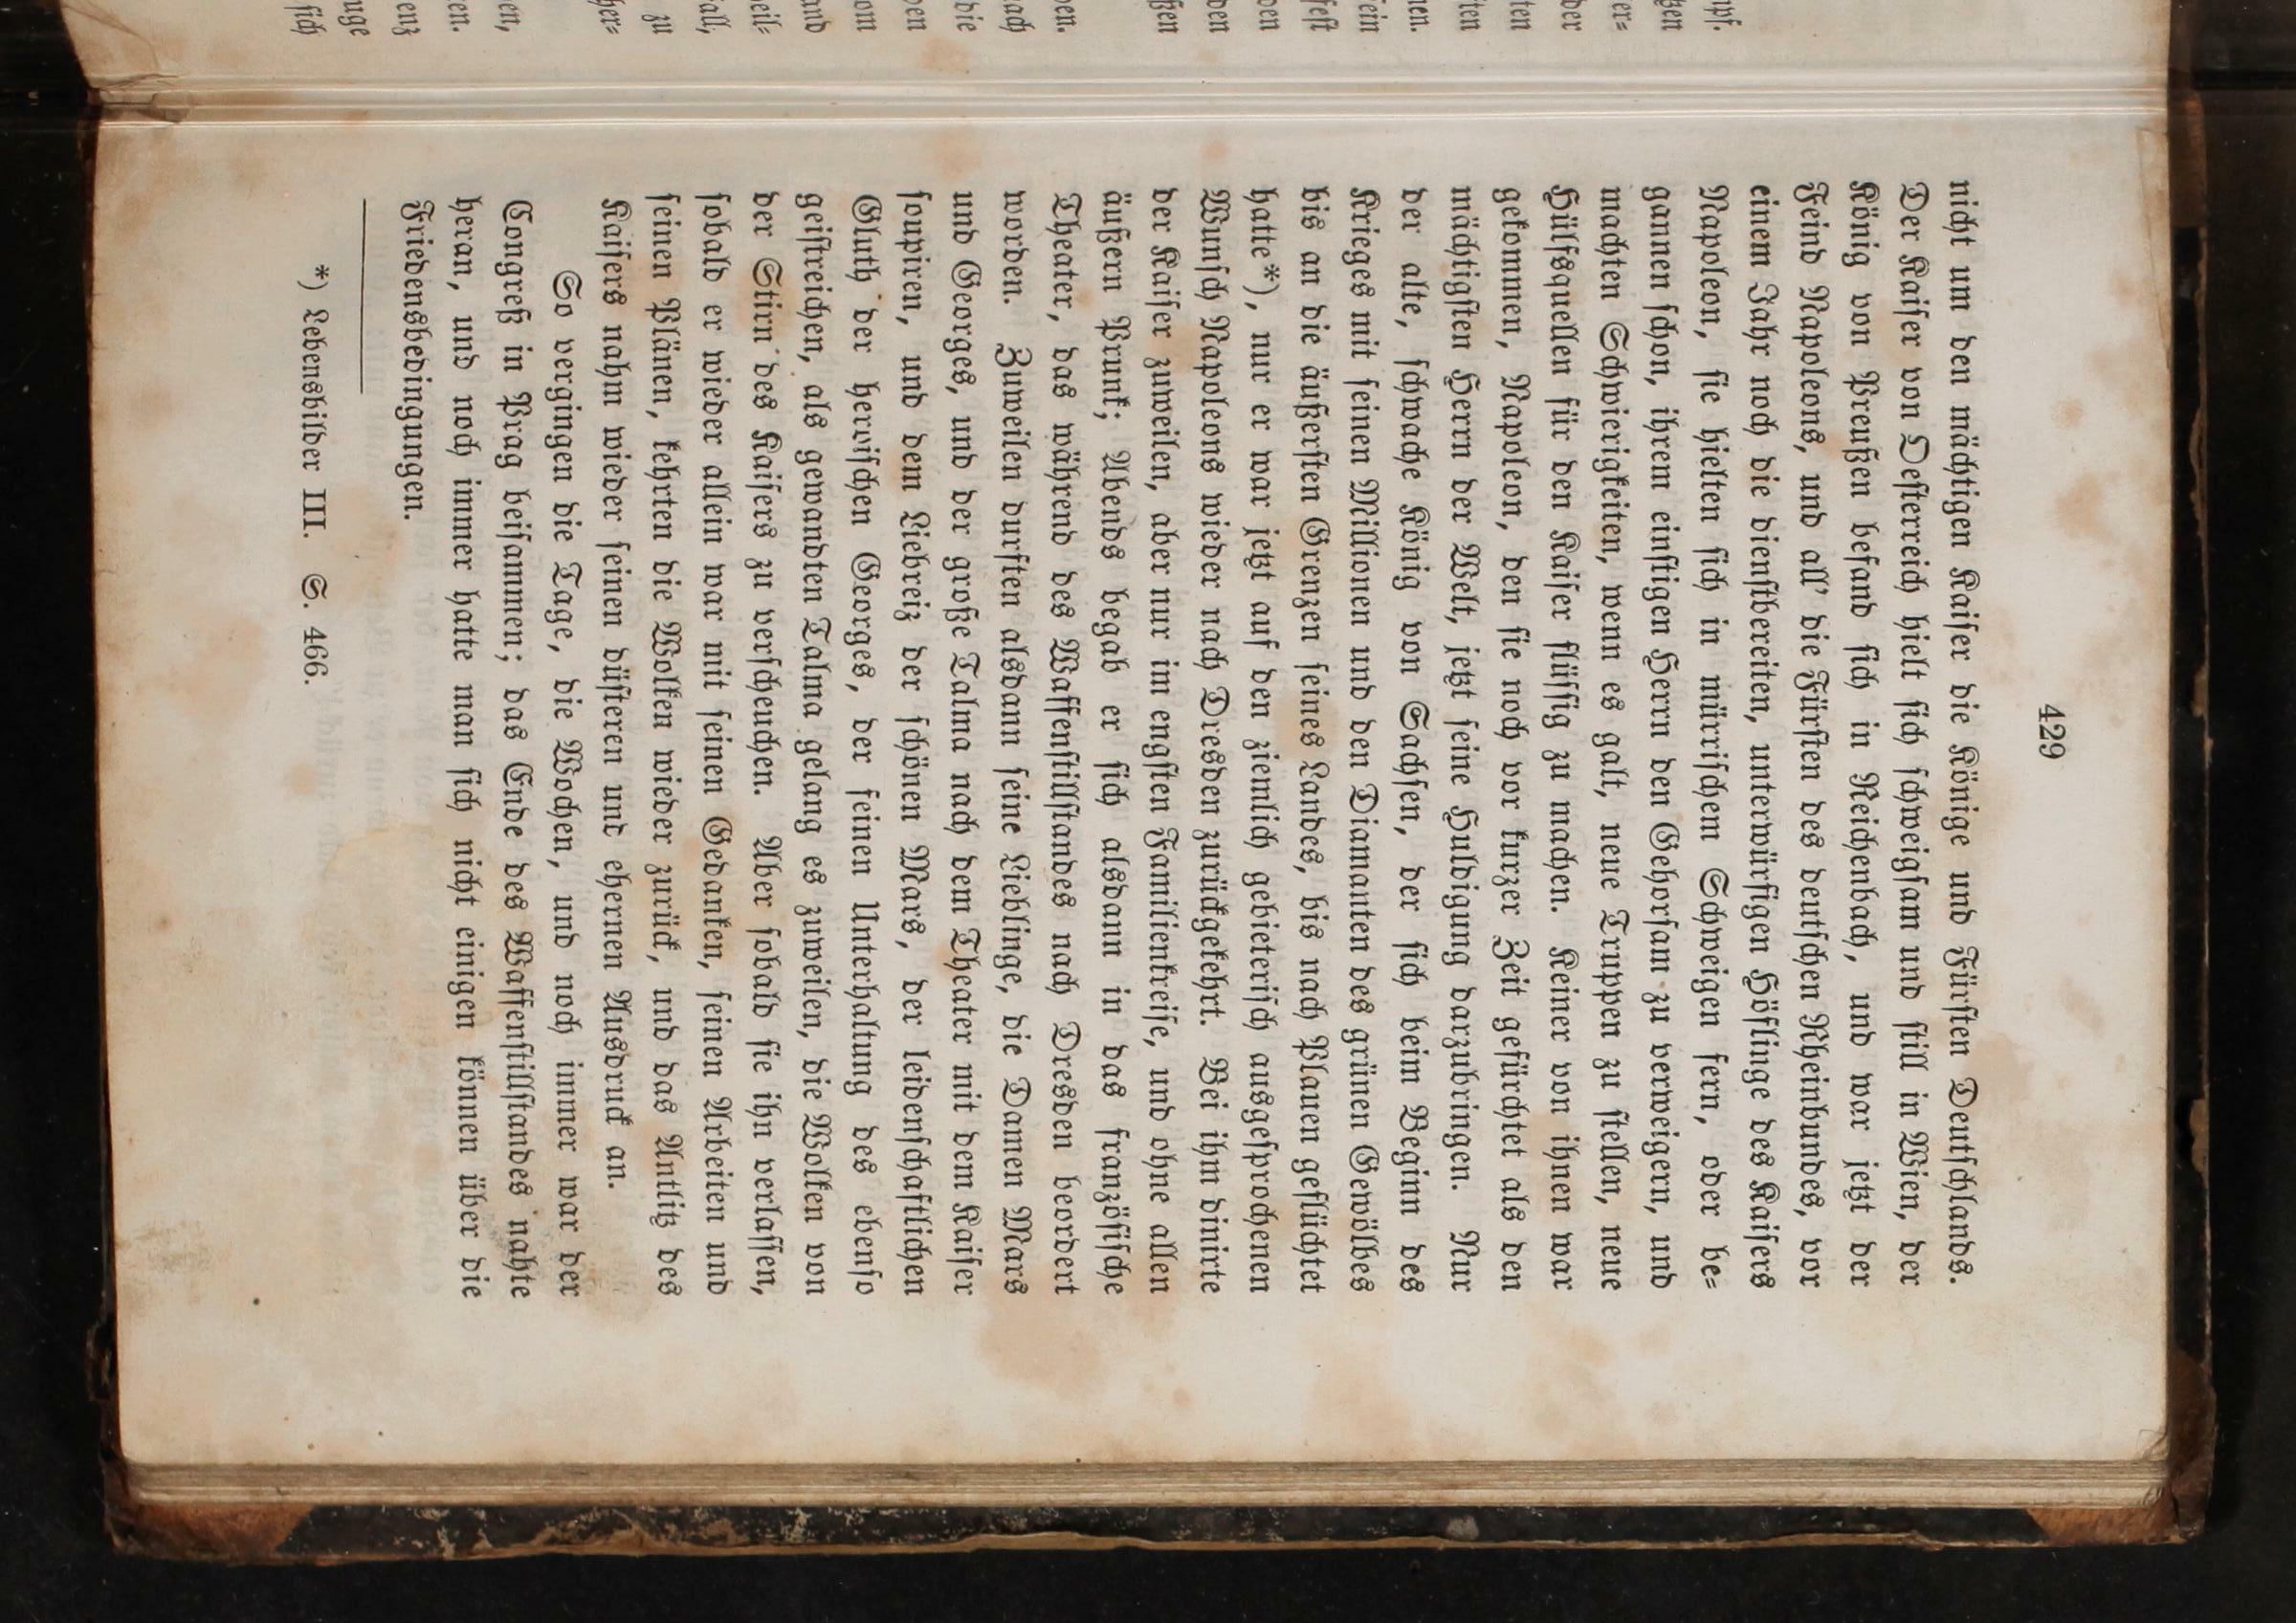 429
nicht um den mächtigen Kaiser die Könige und Fürsten Deutschlands.
Der Kaiser von Oesterreich hielt sich schweigsam und still in Wien, der
König von Preußen befand sich in Reichenbach, und war jetzt der
Feind Napoleons, und all' die Fürsten des deutschen Rheinbundes, vor
einem Jahr noch die dienstbereiten, unterwürfigen Höflinge des Kaisers
Napoleon, sie hielten sich in mürrischem Schweigen fern, oder be=
gannen schon, ihrem einstigen Herrn den Gehorsam zu verweigern, und
machten Schwierigkeiten, wenn es galt, neue Truppen zu stellen, neue
Hülfsquellen für den Kaiser flüssig zu machen. Keiner von ihnen war
gekommen, Napoleon, den sie noch vor kurzer Zeit gefürchtet als den
mächtigsten Herrn der Welt, jetzt seine Huldigung darzubringen. Nur
der alte, schwache König von Sachsen, der sich beim Beginn des
Krieges mit seinen Millionen und den Diamanten des grünen Gewölbes
bis an die äußersten Grenzen seines Landes, bis nach Plauen geflüchtet
hatte*), nur er war jetzt auf den ziemlich gebieterisch ausgesprochenen
Wunsch Napoleons wieder nach Dresden zurückgekehrt. Bei ihm dinirte
der Kaiser zuweilen, aber nur im engsten Familienkreise, und ohne allen
äußern Prunk; Abends begab er sich alsdann in das französische
Theater, das während des Waffenstillstandes nach Dresden beordert
worden. Zuweilen durften alsdann seine Lieblinge, die Damen Mars
und Georges, und der große Talma nach dem Theater mit dem Kaiser
soupiren, und dem Liebreiz der schönen Mars, der leidenschaftlichen
Gluth der heroischen Georges, der feinen Unterhaltung des ebenso
geistreichen, als gewandten Talma gelang es zuweilen, die Wolken von
der Stirn des Kaisers zu verscheuchen. Aber sobald sie ihn verlassen,
sobald er wieder allein war mit seinen Gedanken, seinen Arbeiten und
seinen Plänen, kehrten die Wolken wieder zurück, und das Antlitz des
Kaisers nahm wieder seinen düsteren und ehernen Ausdruck an.
So vergingen die Tage, die Wochen, und noch immer war der
Congreß in Prag beisammen; das Ende des Waffenstillstandes nahte
heran, und noch immer hatte man sich nicht einigen können über die
Friedensbedingungen.
*) Lebensbilder III. S. 466.